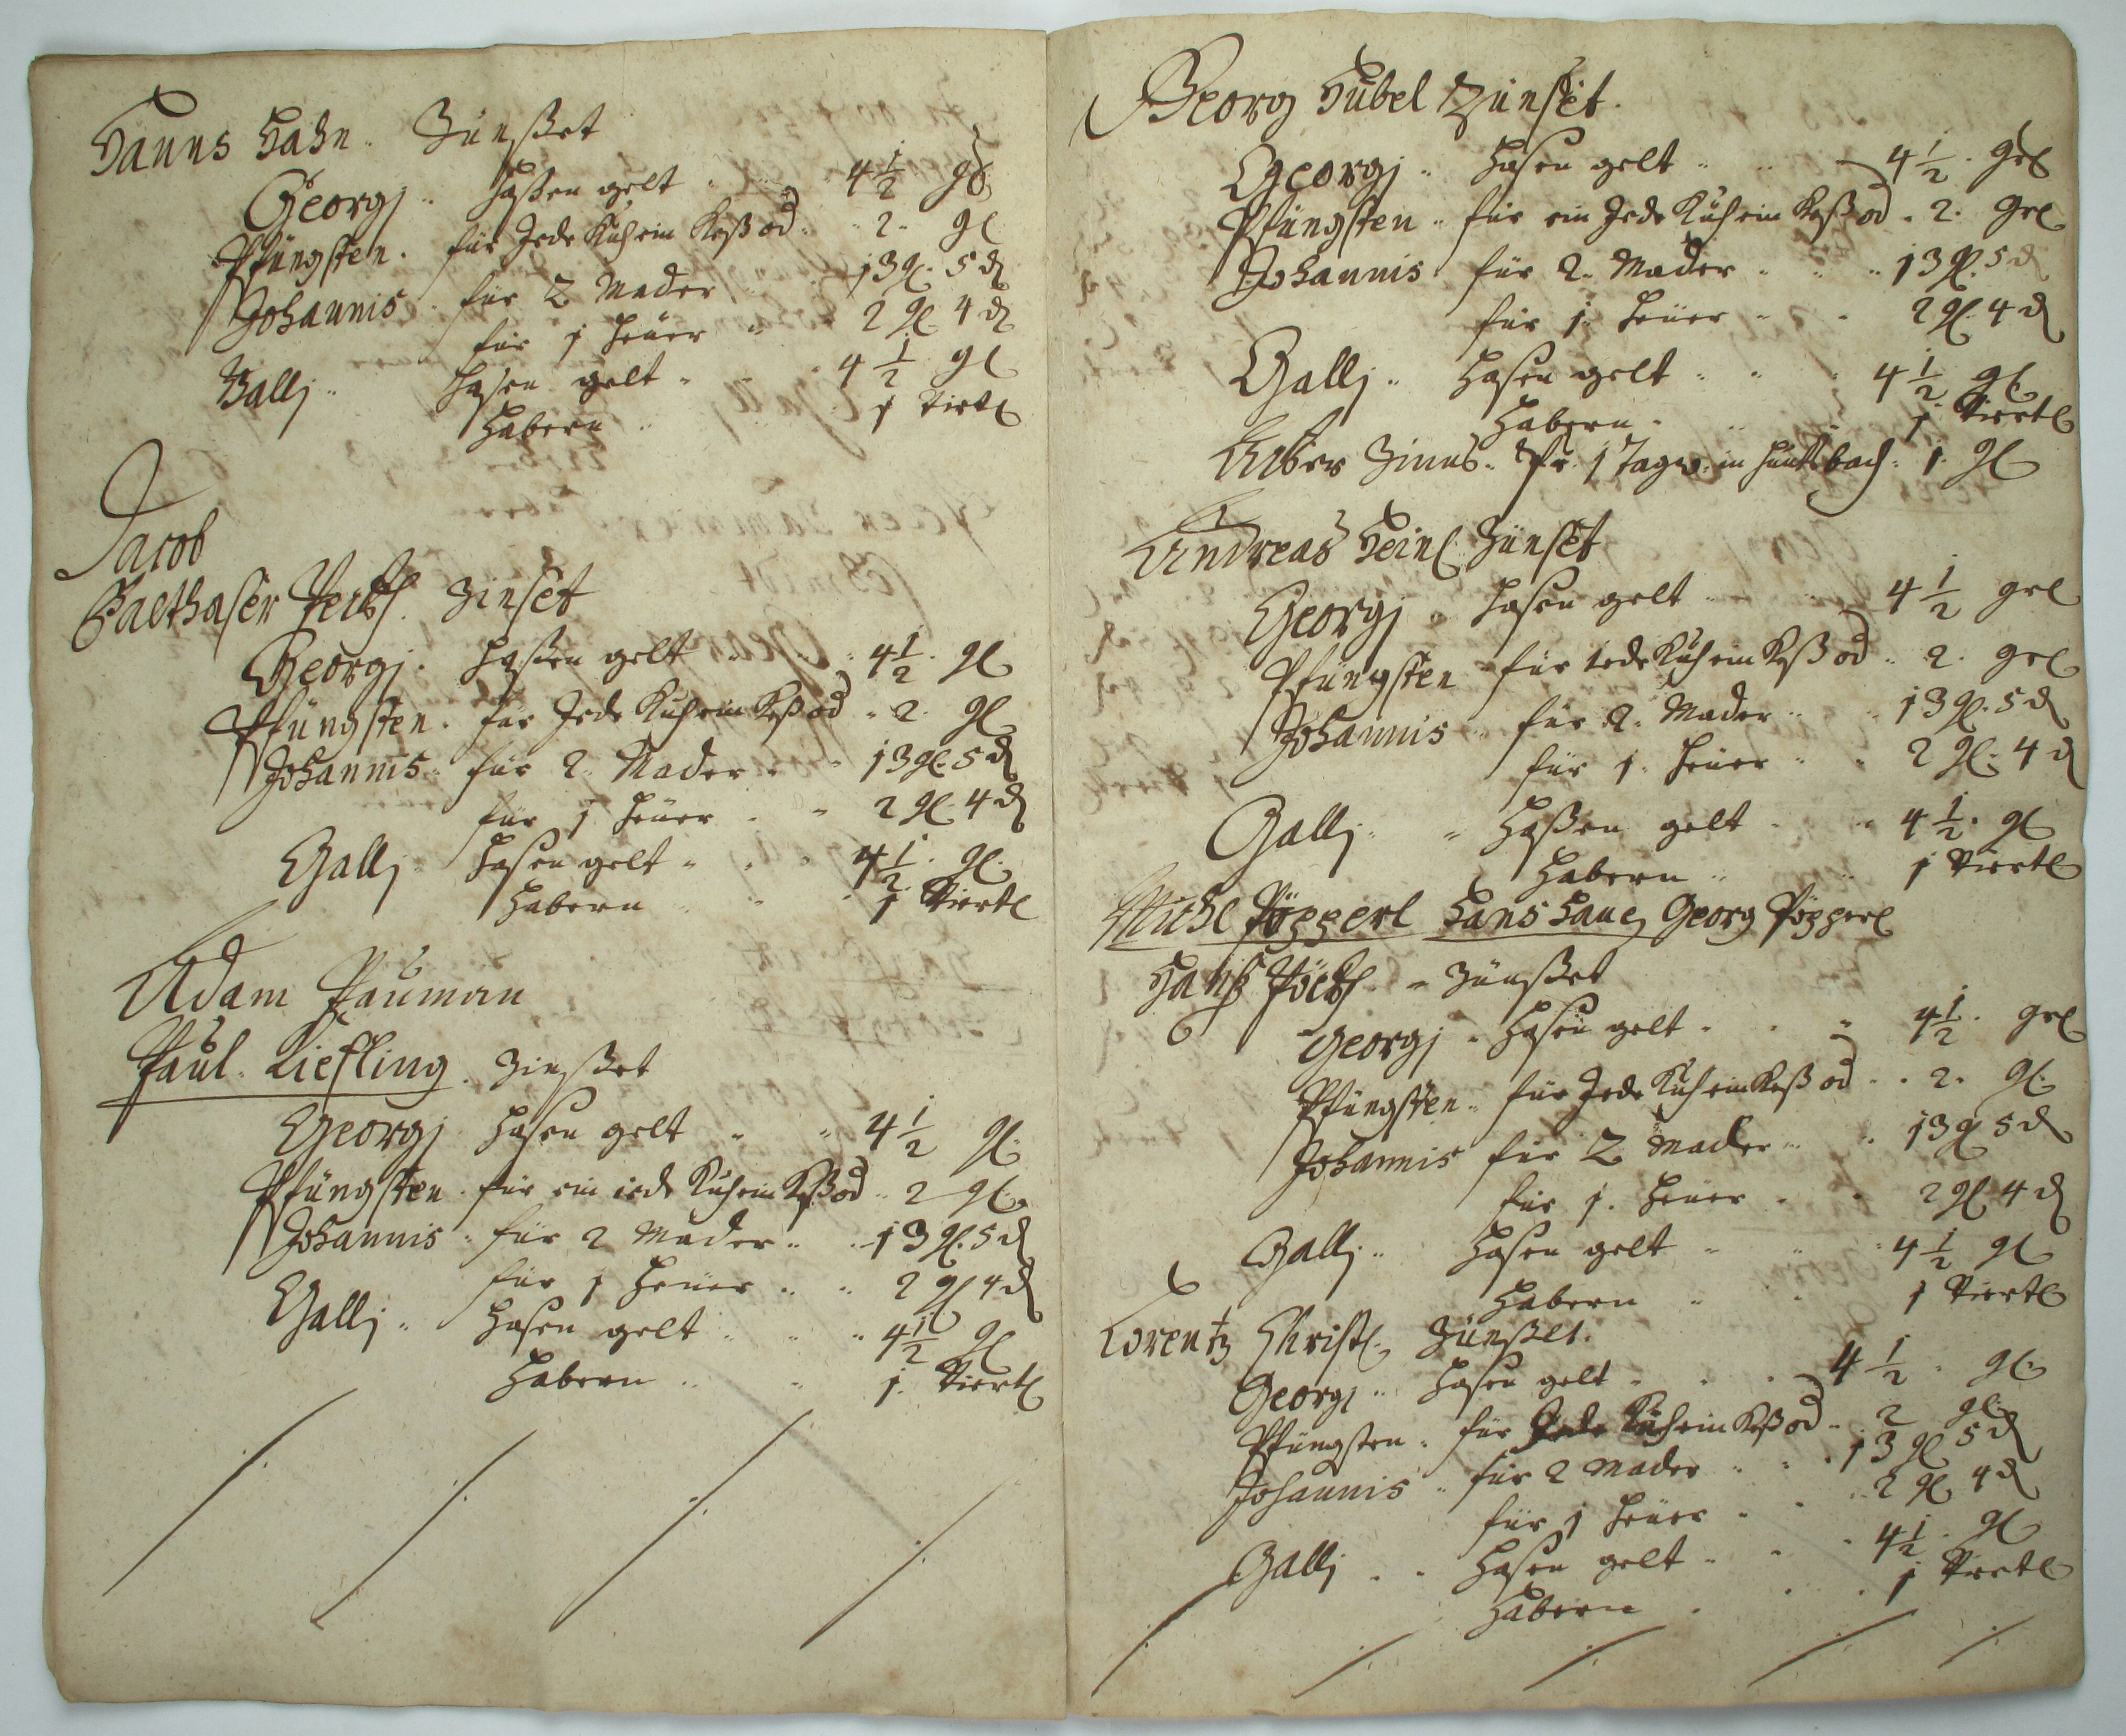 Hanns Hahn. Zünßet
Georgj.. Haßen gelt 4 1/2 gl
Pfüngsten. für Jede Kuh ein Keß od. 2. gl
Johannis. für 2 Mader 13 gl. 5 d
für 1 Heüer 2 gl. 4 d
Gallj.. Hasen gelt 4 1/2 gl
Habern 1 Virtl
Jacob
Balthaser Zinset
Georgj. Haßen gelt 4 1/2. gl
Pfüngsten. für Jede Kuh ein Keß od. 2. gl
Johannis.. für 2. Mader 13 gl. 5 d
für 1 Heüer 2 gl. 4 d
Gallj. Hasen gelt 4 1/2. gl.
Habern 1 Viertl
Adam Pauman
Paul. Kießling. Zinßet
Georgj Hasen gelt 4 1/2 gl.
Pfüngsten. für ein iede Kuh ein Keß od 2 gl.
Johannis. für 2 Mader 13 gl. 5 d
für 1 Heüer 2 gl 4 d
Gallj.. Hasen gelt 4 1/2 gl
Habern 1. Viertl
Georg Hübel Zünset.
Georgj.. Hasen gelt 4 1/2. grl
Pfüngsten.. für ein Jede Kuh ein Keß od. 2. grl
Johannis. für 2. Mader 13 gl. 5 d
für 1. Heüer 2 gl. 4 d
Gallj.. Hasen gelt 4 1/2 gl.
Habern. 1 Viertl
Aber Zinns. 1 Tagw. in 1. gl
Andreas Heinl Zünset
Georgj. Hasen gelt 4 1/2 grl
Pfüngsten für iede Kuh ein Keß od.. 2. grl
Johannis.. für 2. Mader 13 gl. 5 d
für 1. Heüer 2 gl. 4 d
Gallj. Haßen gelt 4 1/2. gl
Habern.. 1 Viertl
Michl Pöpperl Hans Georg Pöpperl
Hanß Zünßet
Georgj. Hasen gelt 4 1/2. grl
Pfüngsten.. für Jede Kuh ein Keß od.. 2. gl.
Johannis für 2 Mader 13 gl 5 d
für 1. Heüer 2 gl 4 d
Gallj.. Hasen gelt 4 1/2 gl
Habern 1 Viertl
Lorentz Christl. Zünßet.
Georgj.. Hasen gelt 4 1/2. gl.
Pfüngsten. für Jede Kuh ein Keß od.. 2 gl.
Johannis.. für 2 Mader 13 gl 5 d
für 1 Heüer 2 gl 4 d
Gallj. Hasen gelt 4 1/2. gl
Habern 1 Virtl